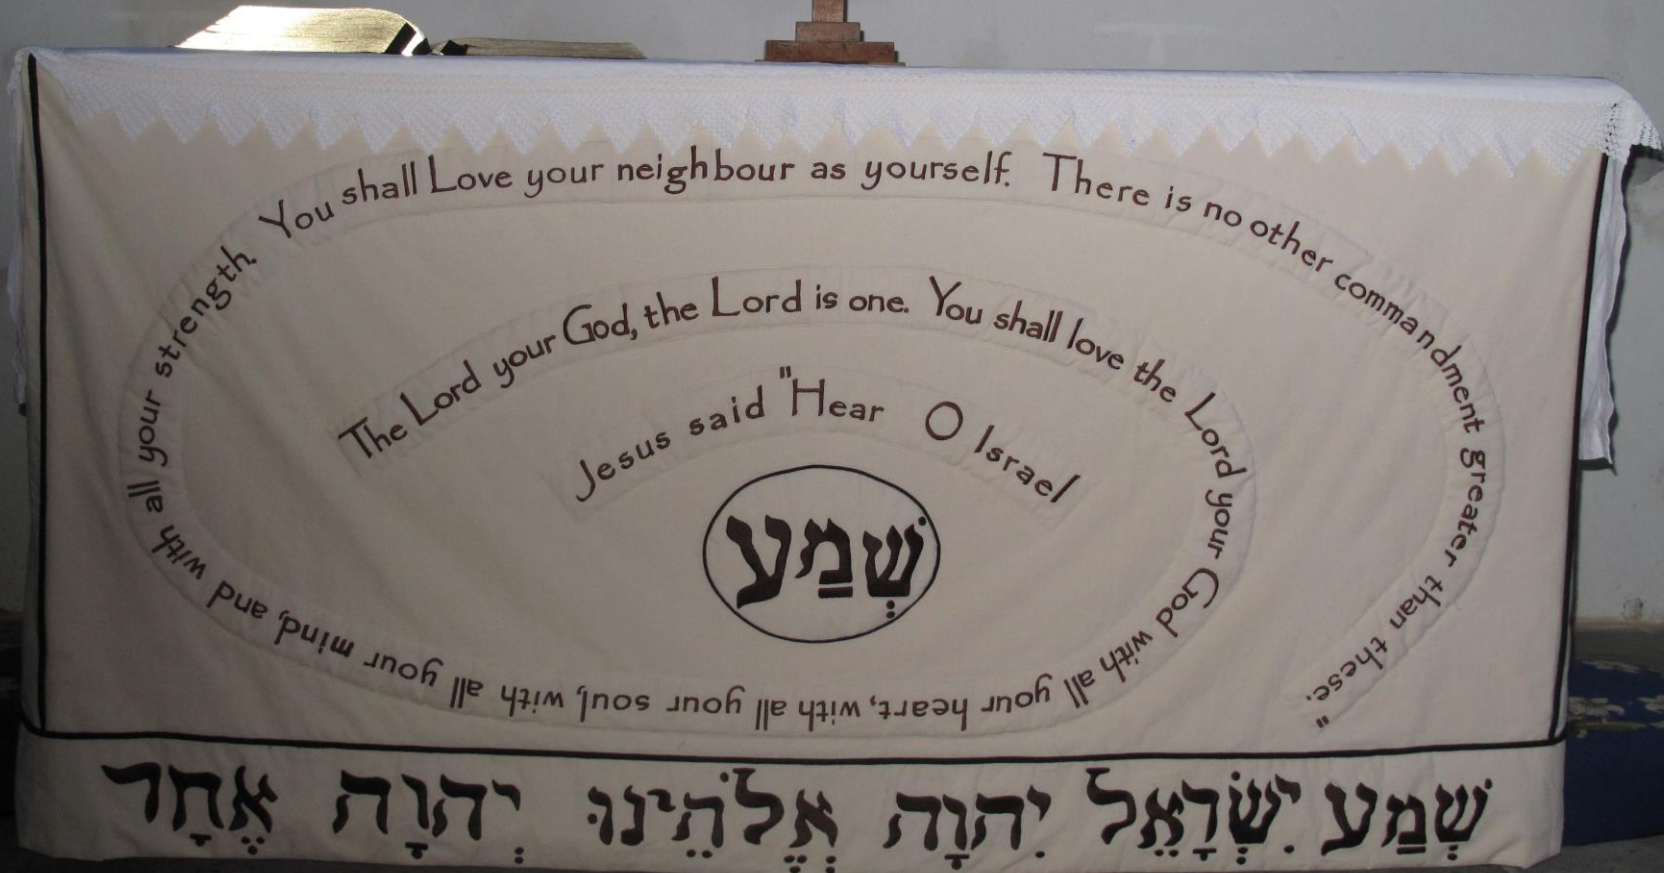 Jesus said "Hear O Israel
The Lord your God, the Lord is one. You shall love the Lord your God with all your heart, with all your soul, with all your mind, and with all your strength. You shall Love your neighbour as yourself. There is no other commandment greater than these."
שְׁמַע
שְׁמַע יִשְׂרָאֵל יִהוָה אֱלֹהֵינוּ יְהוָה אֶחָד